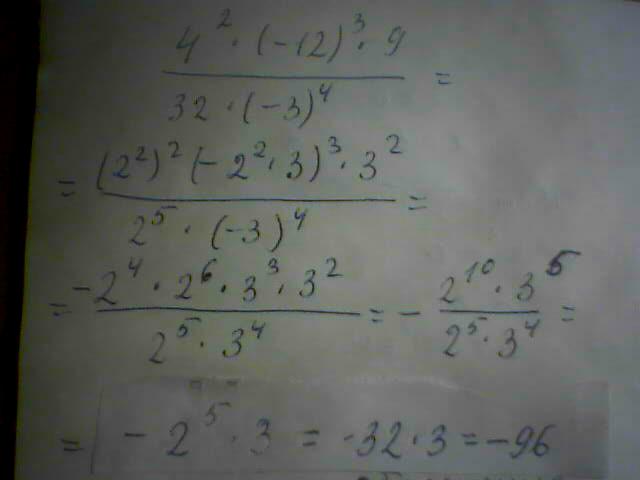 4² · (-12)³ · 9
32 · (-3)⁴ =
= (2²)² (-2² · 3)³ · 3²
2⁵ · (-3)⁴ =
= -2⁴ · 2⁶ · 3³ · 3² = - 2¹⁰ · 3⁵
2⁵ · 3⁴ 2⁵ · 3⁴ =
= -2⁵ · 3 = -32 · 3 = -96